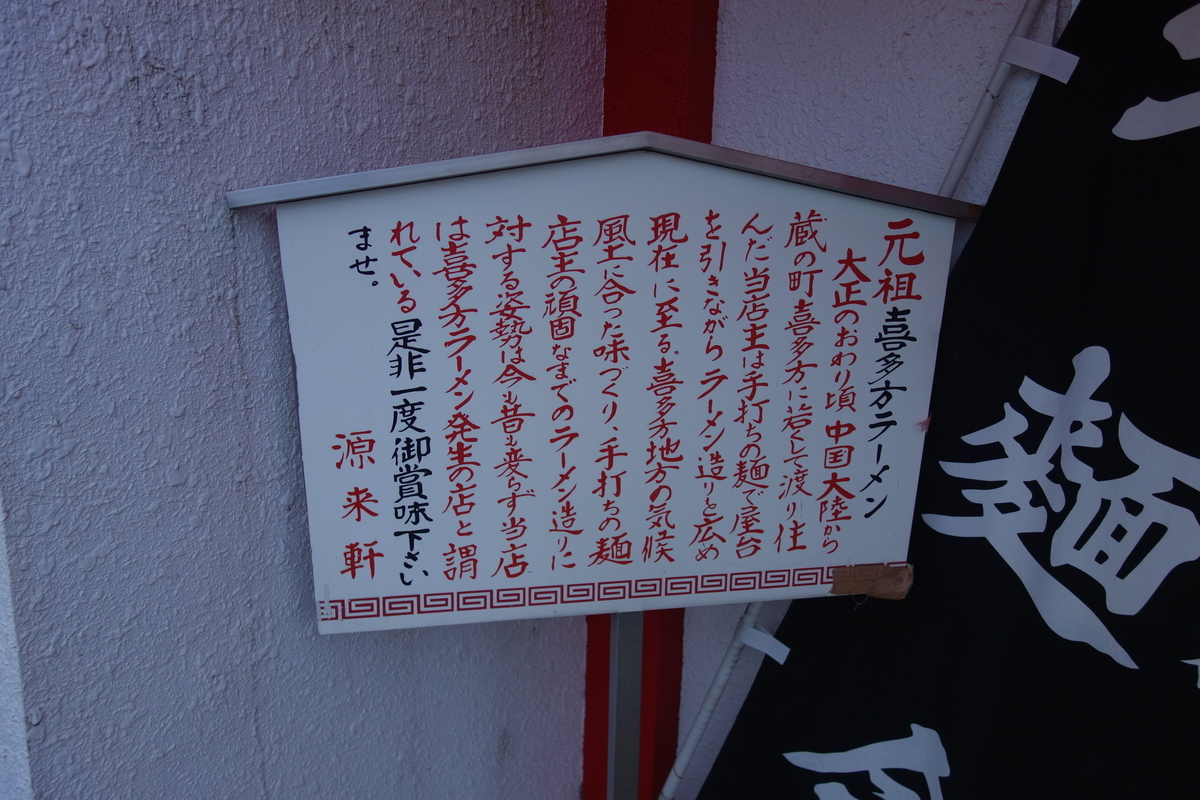 元祖喜多方ラーメン
大正のおわり頃中国大陸から
蔵の町喜多方に若くして渡り住
んだ当店主は手打ちの麺で屋台
を引きながらラーメン造りを広め
現在に至る。喜多方地方の気候
風土に合った味づくり、手打ちの麺
店主の頑固なまでのラーメン造りに
対する姿勢は今も昔も変らず当店
は喜多方ラーメン発生の店と謂
れている是非一度御賞味下さい
ませ。
源来軒
麺